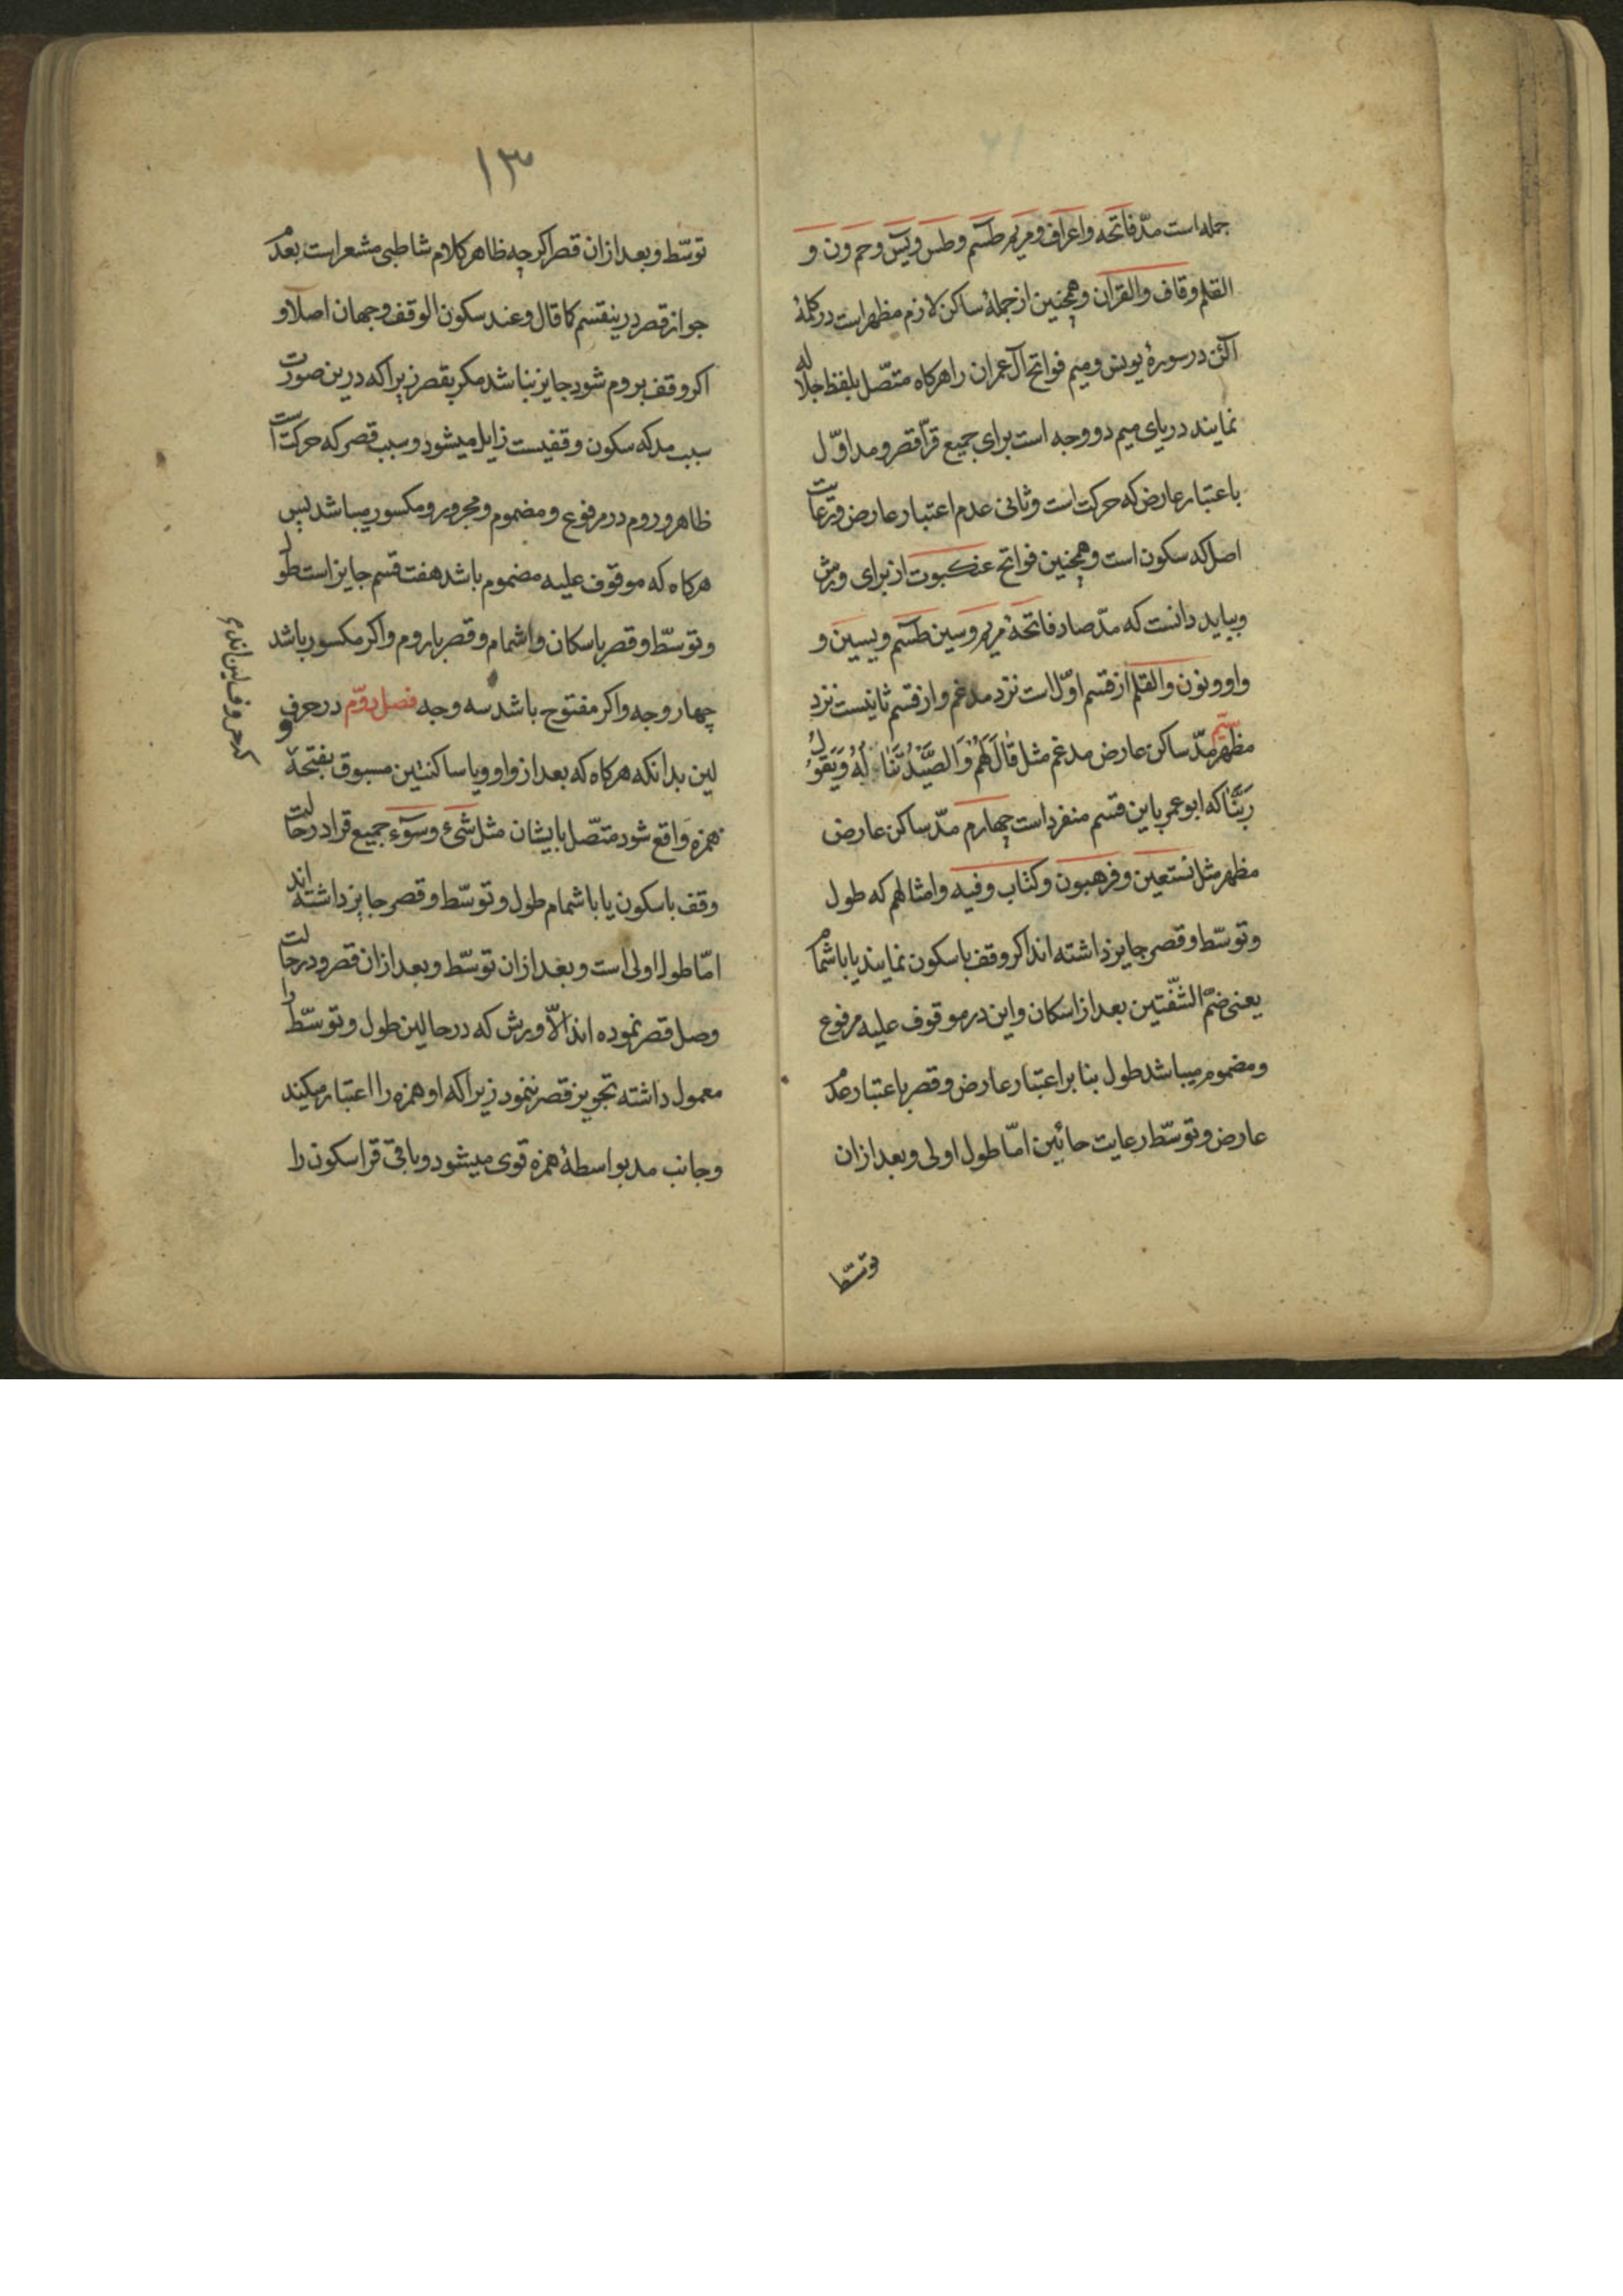 جمله است مدّ فاتحه واعراف ومریم طسٓم وطس ویٓس وحم ون و
القلم وقاف والقرآن وهمچنین از جملهٔ ساکن لازم مظهر است در کلمهٔ
آلئن در سورهٔ یونس ومیم فواتح آل عمران را هرکاه متصّل بلفظ جلاله
نمایند در یای میم دو وجه است برای جمیع قرآ قصر ومد اوّل
باعتبار عارض که حرکت است وثانی عدم اعتبار عارض ورعایت
اصل که سکون است وهمچنین فواتح عنکبوت از برای ورش
وبباید دانست که مدّ صاد فاتحهٔ مریم وسین طسٓم ویسین و
واو ونون والقلم از قسم اوّل است نزد مدغم واز قسم ثانیست نزد
مظهر سیّم مدّ ساکن عارض مدغم مثل قال لهم والصّیْدُ تَّنَالُهُ وَیَقُولُ
رَبَّنَا که ابو عمر باین قسم منفرد است چهارم مدّ ساکن عارض
مظهر مثل نستعین وفرهبون وکتاب وفیه وامثالهم که طول
وتوسّط وقصر جایز داشته اند اکر وقف باسکون نمایند یا باشمام
یعنی ضمّ الشّفّتین بعد از اسکان واین در موقوف علیه مرفوع
ومضموم میباشد طول بنا بر اعتبار عارض وقصر باعتبار عدم
عارض وتوسّط رعایت جانبین امّا طول اولی وبعد از ان
توسّط
١٣
توسّط وبعد از ان قصر اکر چه ظاهر کلام شاطبی مشعر است بعدم
جواز قصر درینقسم کما قال وعند سکون الوقف وجهان اصلا و
اکر وقف بروم شود جایز نباشد مکر بقصر زیرا که درین صورت
سبب مد که سکون وقفیست زایل میشود وسبب قصر که حرکت است
ظاهر وروم در مرفوع ومضموم ومجرور ومکسور میباشد پس
هرکاه که موقوف علیه مضموم باشد هفت قسم جایز است طول
وتوسّط وقصر باسکان واشمام وقصر باروم واکر مکسور باشد
چهار وجه واکر مفتوح باشد سه وجه فصل دوّم در حروف
لین بدانکه هرکاه که بعد از واو ویا ساکنتین مسبوق بفتحهٔ
همزه واقع شود متصّل بایشان مثل شئ وسوٓء جمیع قرا در حالت
وقف باسکون یا باشمام طول وتوسّط وقصر جایز داشته اند
امّا طول اولی است وبعد از ان توسّط وبعد از ان قصر ودر حالت
وصل قصر نموده اند الّا ورش که در حالین طول وتوسّط را
معمول داشته تجویز قصر ننمود زیرا که او همزه را اعتبار میکند
وجانب مد بواسطهٔ همزه قوی میشود وباقی قرا سکون را